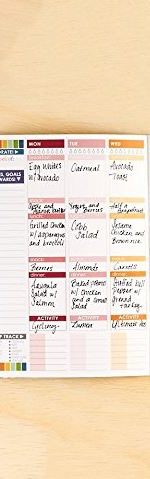 MON
TUE
WED
GOALS
Egg Whites
w/ Avocado
Oatmeal
Avocado
Toast
snack
Apple and
Yogurt and
Berries
Half a
Grapefruit
Grilled Chicken
w/ asparagus
and broccoli
Cobb
Salad
Chicken
and Brown
rice
snack
Berries
Almonds
Carrots
dinner
dinner
dinner
Salad w/
Salmon
Baked potato
w/ chicken
and a small
Salad
Stuffed Bell
Pepper w/
Ground
Turkey
TRACK
ACTIVITY
ACTIVITY
ACTIVITY
Cycling
Zumba
Ultimate